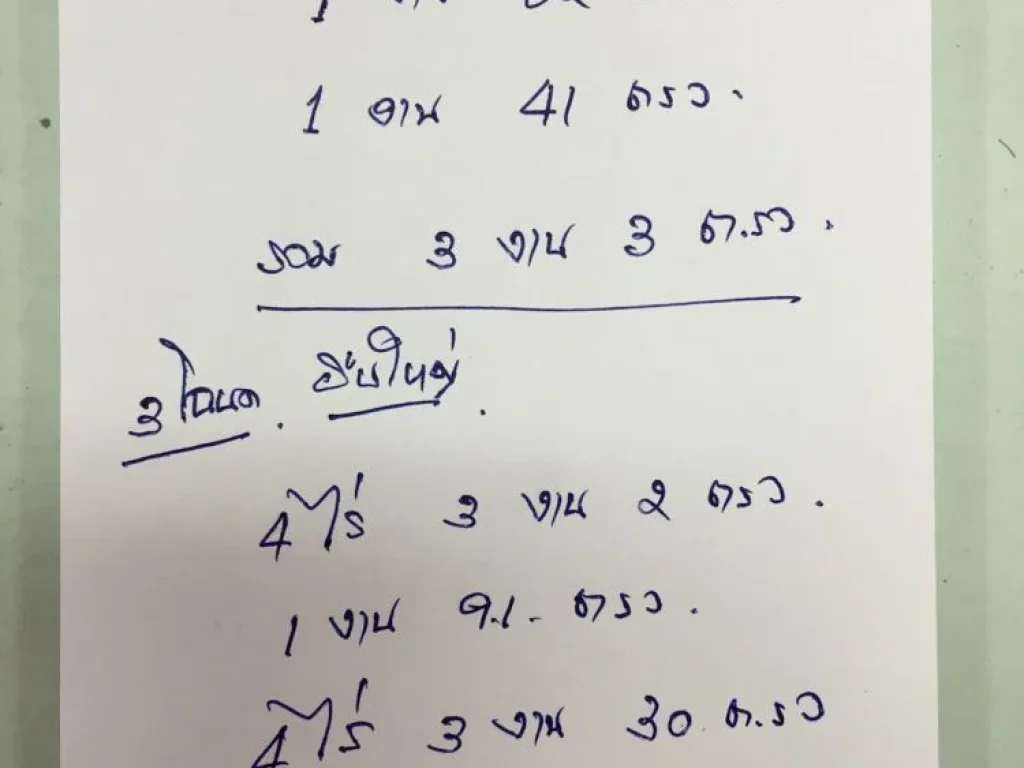 1 งาน
1 งาน 41 ตรว.
รวม 3 งาน 3 ต.รว.
3 โฉนด. ใหญ่.
4 ไร่ 3 งาน 2 ตรว.
1 งาน 91. ตรว.
4 ไร่ 3 งาน 30 ต.รว